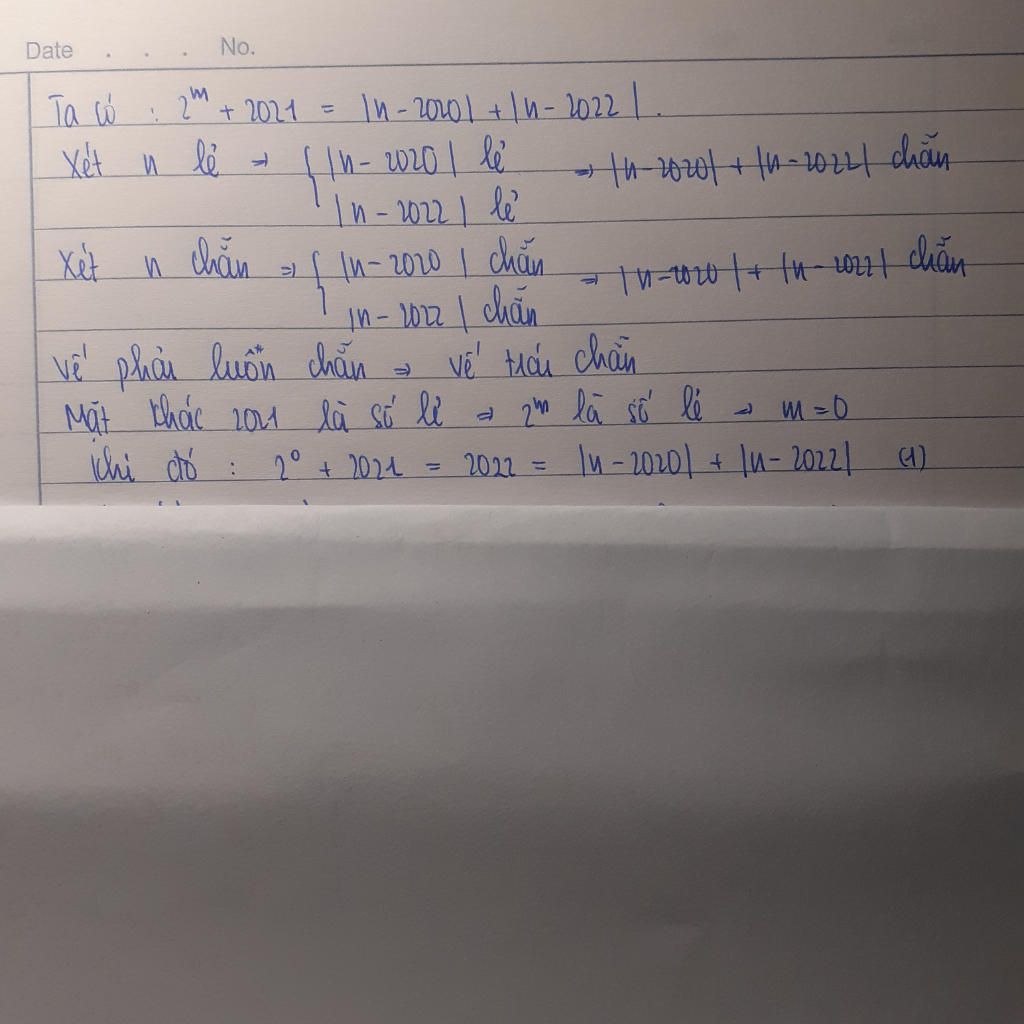 Date . . . No.
Ta có : 2^m + 2021 = |n - 2020| + |n - 2022|.
Xét n lẻ → { |n - 2020| lẻ → |n - 2020| + |n - 2022| chẵn
|n - 2022| lẻ
Xét n chẵn ⇒ { |n - 2020| chẵn → |n - 2020| + |n - 2022| chẵn
|n - 2022| chẵn
Vế phải luôn chẵn → vế trái chẵn
Mặt khác 2021 là số lẻ → 2^m là số lẻ → m = 0
Khi đó : 2^0 + 2021 = 2022 = |n - 2020| + |n - 2022| (1)